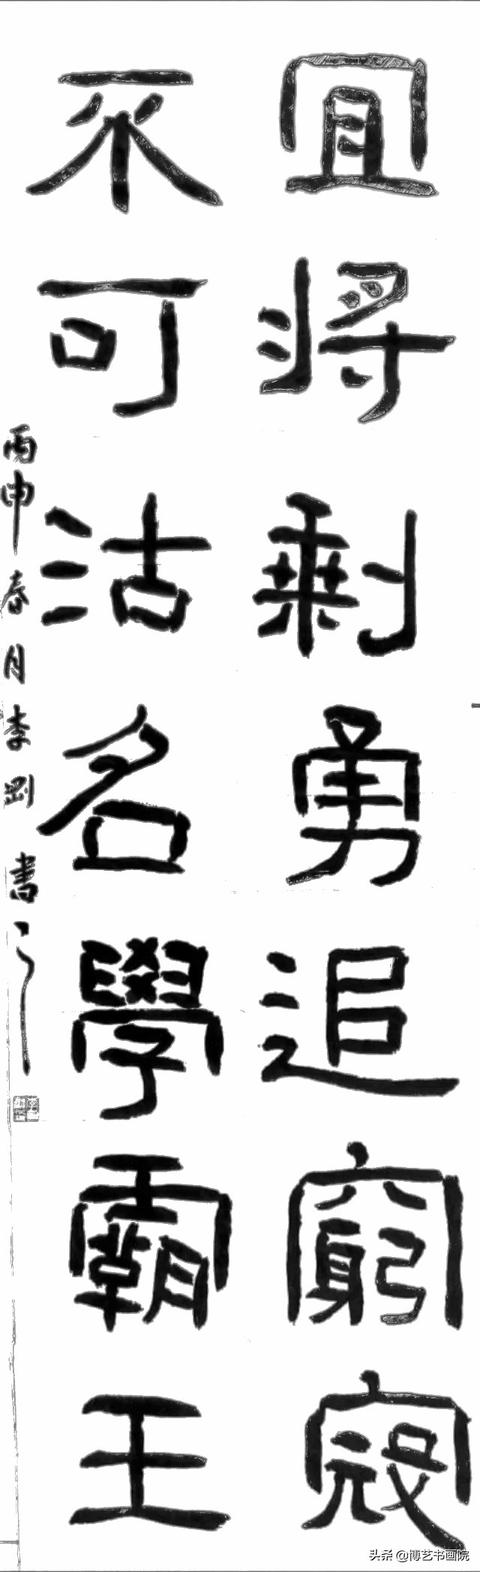 宜将剩勇追窮寇
不可沽名學霸王
丙申春月李剛書之
头条 @博艺书画院